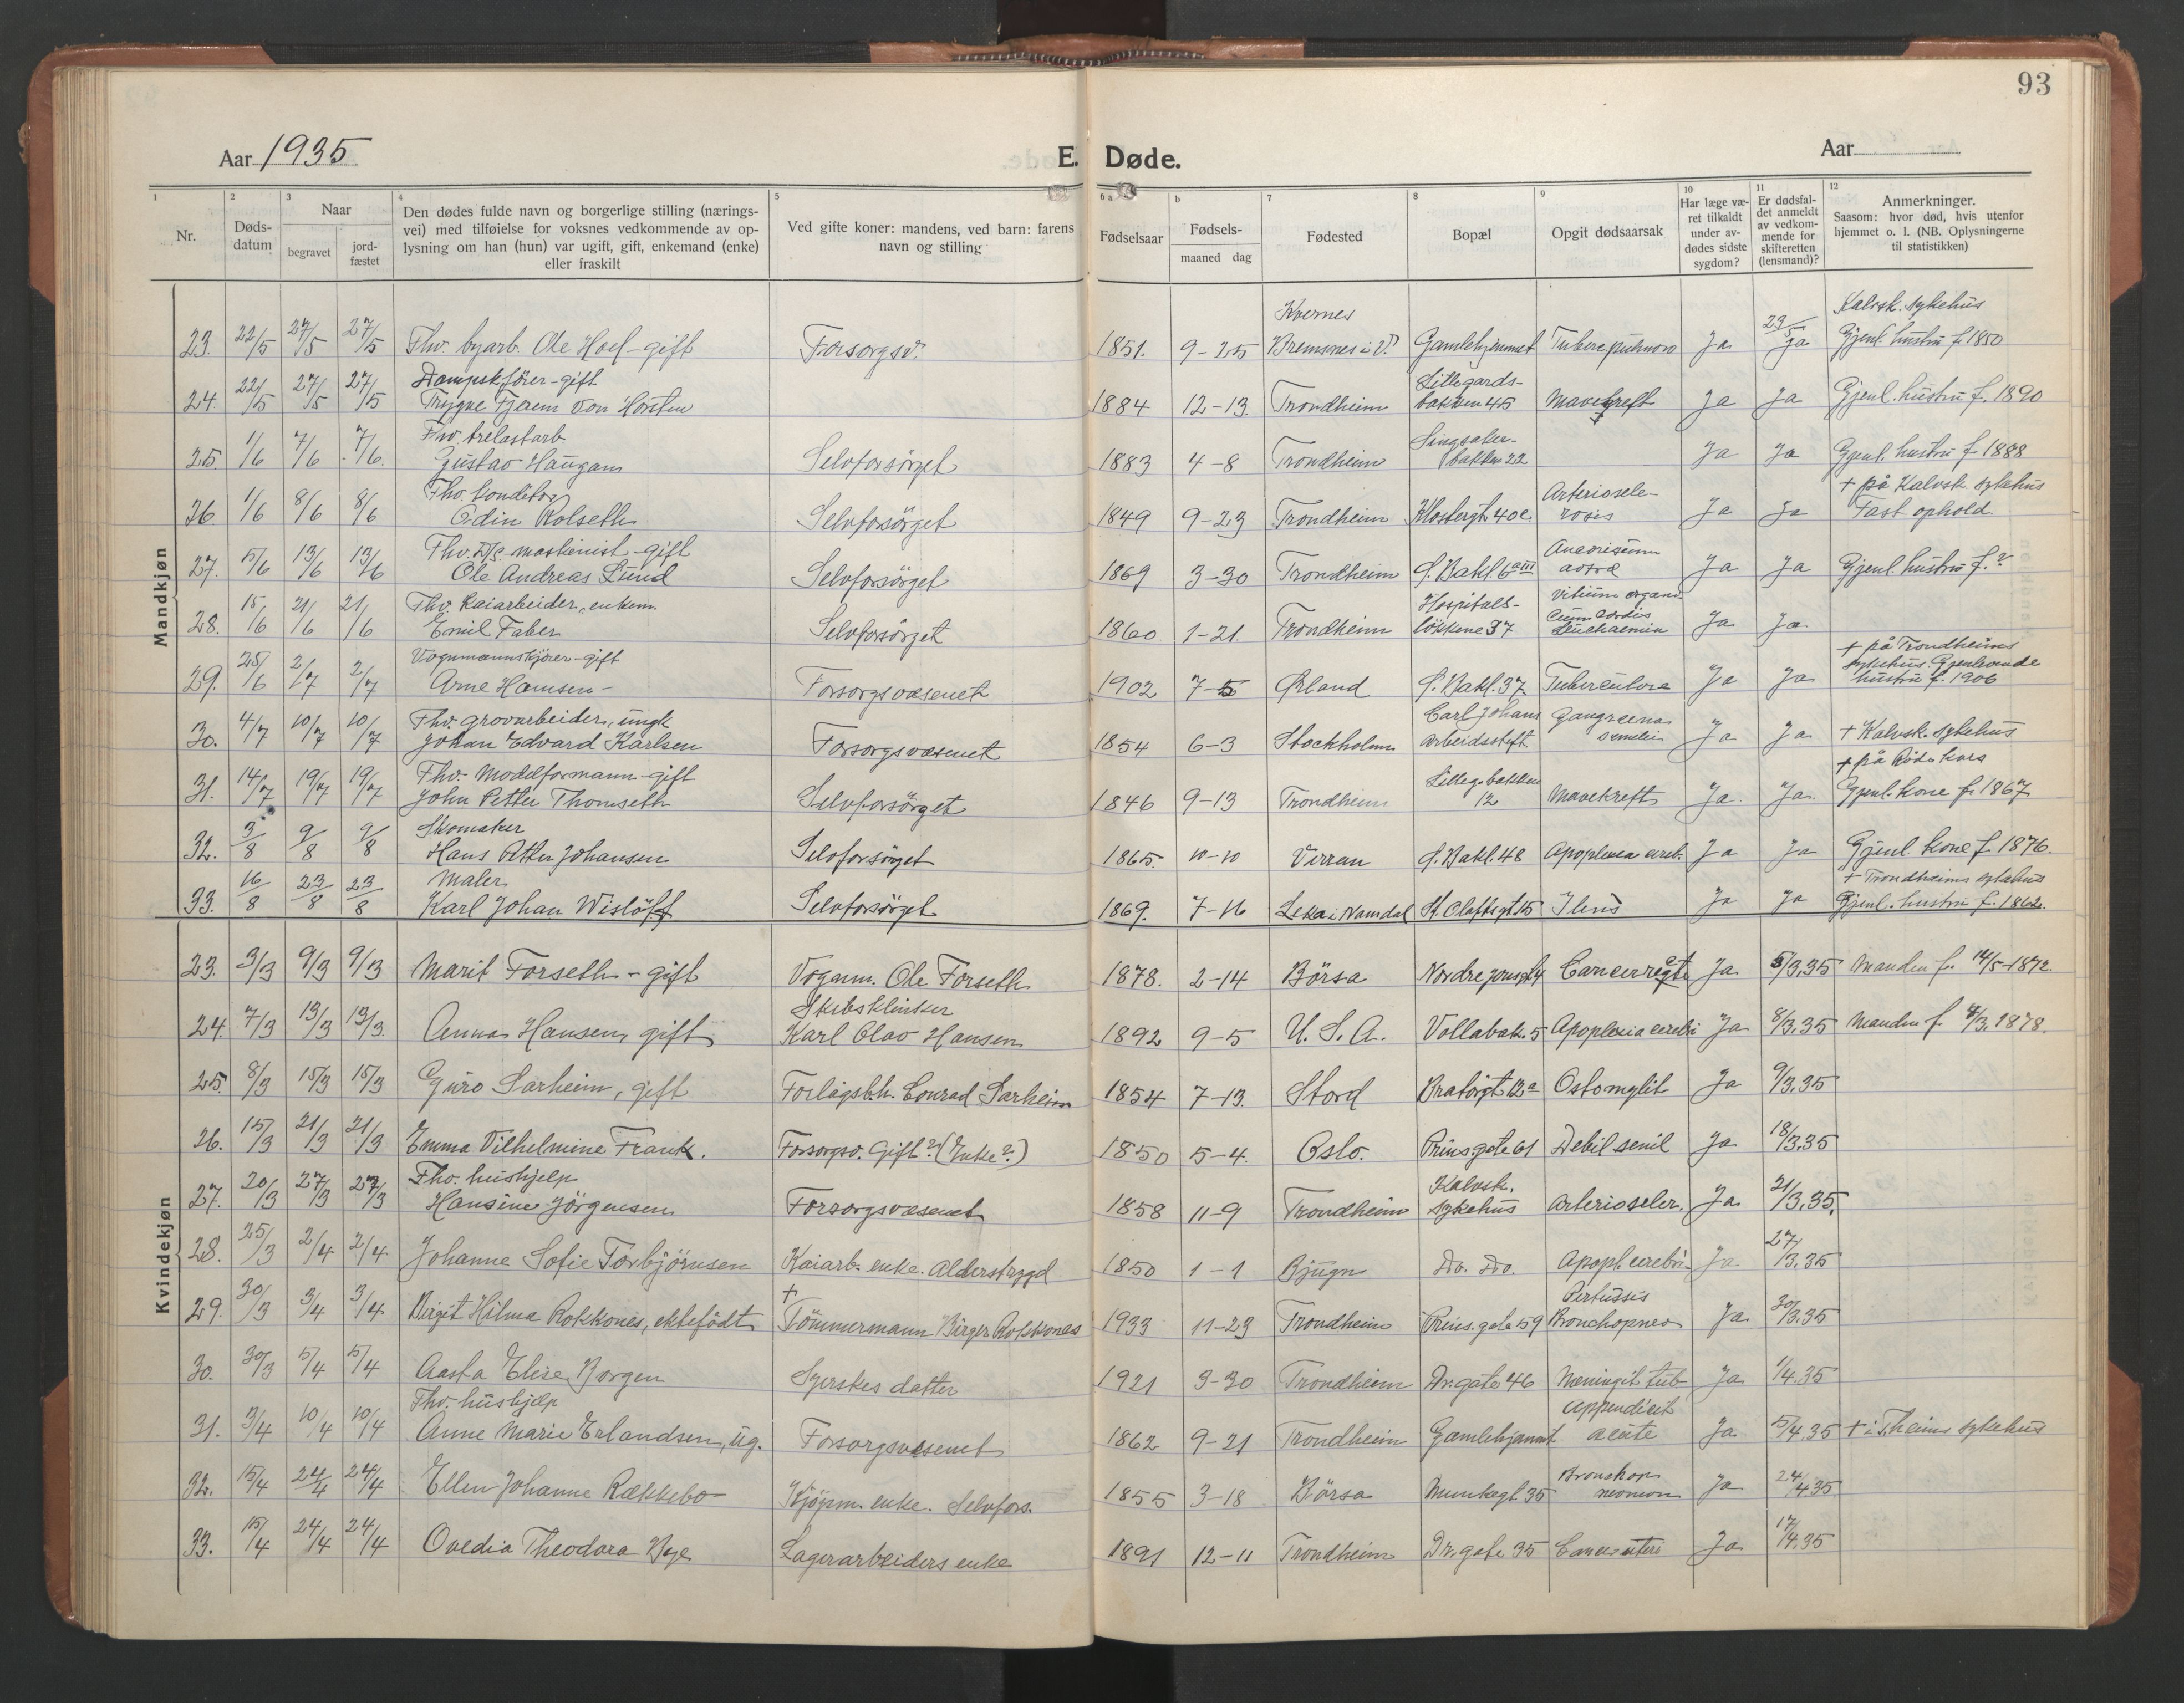 93
Aar 1935 E. Døde. Aar
1 2 3 4 5 6 a b 7 8 9 10 11 12
Nr. Dødsdatum Naar begravet jordfæstet
Den dødes fulde navn og borgerlige stilling (nærings-
vei) med tilføielse for voksnes vedkommende av op-
lysning om han (hun) var ugift, gift, enkemand (enke)
eller fraskilt
Ved gifte koner: mandens, ved barn: farens
navn og stilling
Fødselsaar
Fødsels-
maaned dag
Fødested
Bopæl
Opgit dødsaarsak
Har læge væ-
ret tilkaldt
under av-
dødes sidste
sygdom?
Er dødsfal-
det anmeldt
av vedkom-
mende for
skifteretten
(lensmand)?
Anmerkninger.
Saasom: hvor død, hvis utenfor
hjemmet o. l. (NB. Oplysningerne
til statistikken)
Mandkjøn
Kvernes Kalvsk. sykehus
23. 22/5 27/5 27/5 Fhv. byarb. Ole Hoel - gift Forsorgsv. 1851. 9-25 Bremsnes i Gamlehjemmet Ja 23/5 ja Gjenl. hustru f. 1850
Dampsk.förer - gift Lillegards-
24. 22/5 27/5 27/5 Trygve Fjerem von Horsten 1884 12-13. Trondheim bakken 45 Mavekreft Ja Ja Gjenl. hustru f. 1890
Fhv. trelastarb. Singsaker-
25. 1/6 7/6 7/6. Gustav Haugan Selvforsörget 1883 4-8 Trondheim bakken 22 Ja Ja Gjenl. hustru f. 1888
Fhv. konditor Arteriosele- + på Kalvsk. sykehus
26. 1/6 8/6 8/6 Odin Rolseth Selvforsörget 1849 9-23 Trondheim Klostergt. 40 c. rosis Ja Ja Fast ophold.
Fhv. D/S. maskinist - gift
27. 5/6 13/6 13/6 Ole Andreas Lund Selvforsörget 1869 3-30 Trondheim Ö. Bakl. 6 a III aorta Ja Ja Gjenl. hustru f. ?
Fhv. kaiarbeider, enkem. Hospitals- Vitium organi-
28. 15/6 21/6 21/6 Emil Faber Selvforsörget 1860 1-21 Trondheim lökkene 37 cum cordis Leuchaemia Ja Ja
Vognmannskjörer - gift + på Trondheims
29. 25/6 2/7 2/7 Arne Hansen - Forsorgsvæsenet 1902 7-5 Ørland Ö. Bakl. 37 Tuberculose Ja Ja sykehus. Gjenlevende
hustru f. 1906
Fhv. grovarbeider, ungk. Carl Johans Gangreena
30. 4/7 10/7 10/7 Johan Edvard Karlsen Forsorgsvæsenet 1854 6-3 Stockholm arbeidsstift. senilis Ja Ja + Kalvsk. sykehus
Fhv. Moddformann - gift Lilleg.bakken + på Röde Kors
31. 14/7 19/7 19/7 John Petter Thomseth Selvforsörget 1846 9-13 Trondheim 12 Mavekreft Ja. Ja. Gjenl. kone f. 1867
Skomaker
32. 3/8 9/8 9/8 Hans Petter Johansen Selvforsörget 1865. 10-10 Verran Ö. Bakl. 48 Apoplexia cereb. Ja Ja Gjenl. kone f. 1876.
Maler + Trondheims sykehus
33. 16/8 23/8 23/8 Karl Johan Wislöff Selvforsörget 1869. 7-16 Leka i Namdal St. Olafsgt. 15 Ileus Ja Ja Gjenl. hustru f. 1862.
Kvindekjøn
23. 3/3 9/3 9/3 Marit Forseth - gift Vognm. Ole Forseth 1878. 2-14 Börsa Ja 5/3.35 Manden f. 14/5-1872.
Skibsklinker
24. 7/3 13/3 13/3. Anna Hansen, gift Karl Olav Hansen 1892 9-5 U. S. A. Vollabak. 5 Apoplexia cerebri Ja 8/3.35 Manden f. 4/3.1878.
25. 8/3 15/3 15/3 Guro Sarheim, gift Forlagsbh. Conrad Sarheim 1854 7-13. Stord Bratörgt. 12 a Ostomylit Ja 9/3.35
26. 15/3 21/3 21/3 Emma Vilhelmine Frank. Forsorgsv. Gift? (Enke?) 1850 5-4. Oslo. Prins.gate 61 Debil senil Ja 18/3.35
Fhv. hushjelp Kalvsk.
27. 20/3 27/3 27/3 Hansine Jörgensen Forsorgsvæsenet 1858 11-9 Trondheim sykehus Arterioseler. Ja 21/3.35.
28. 25/3 2/4 2/4 Johanne Sofie Torbjörnsen Kaiarb. enke. Alderstrygd 1850 1-1 Bjugn Do. Do. Apopl. cerebri Ja 27/3.35
+ Pertussis
29. 30/3 3/4 3/4 Birgit Hilma Rokkones, ektefödt Tömmermann Birger Rokkones 1933 11-23 Trondheim Prins.gate 59 Bronchopneu Ja 30/3.35
30. 30/3 5/4 5/4 Aasta Elise Borgen Syerskes datter 1921 3-30 Trondheim Dr.gate 46 Meningit tub. Ja 1/4.35
Fhv. hushjelp Appendicit
31. 3/4 10/4 10/4 Anne Marie Erlandsen, ug. Forsorgsvæsenet 1862 9-21 Trondheim Gamlehjemmet acute Ja 5/4.35 + i T.heims sykehus
32. 15/4 24/4 24/4 Ellen Johanne Rækkebo Kjöpm. enke. Selvfors. 1855 3-18 Börsa Munkegt. 35 Ja 24/4.35
33. 15/4 24/4 24/4 Ovedia Theodora Bye Lagerarbeiders enke 1891 12-11 Trondheim Dr.gate 35 Canc. uteri Ja 17/4.35